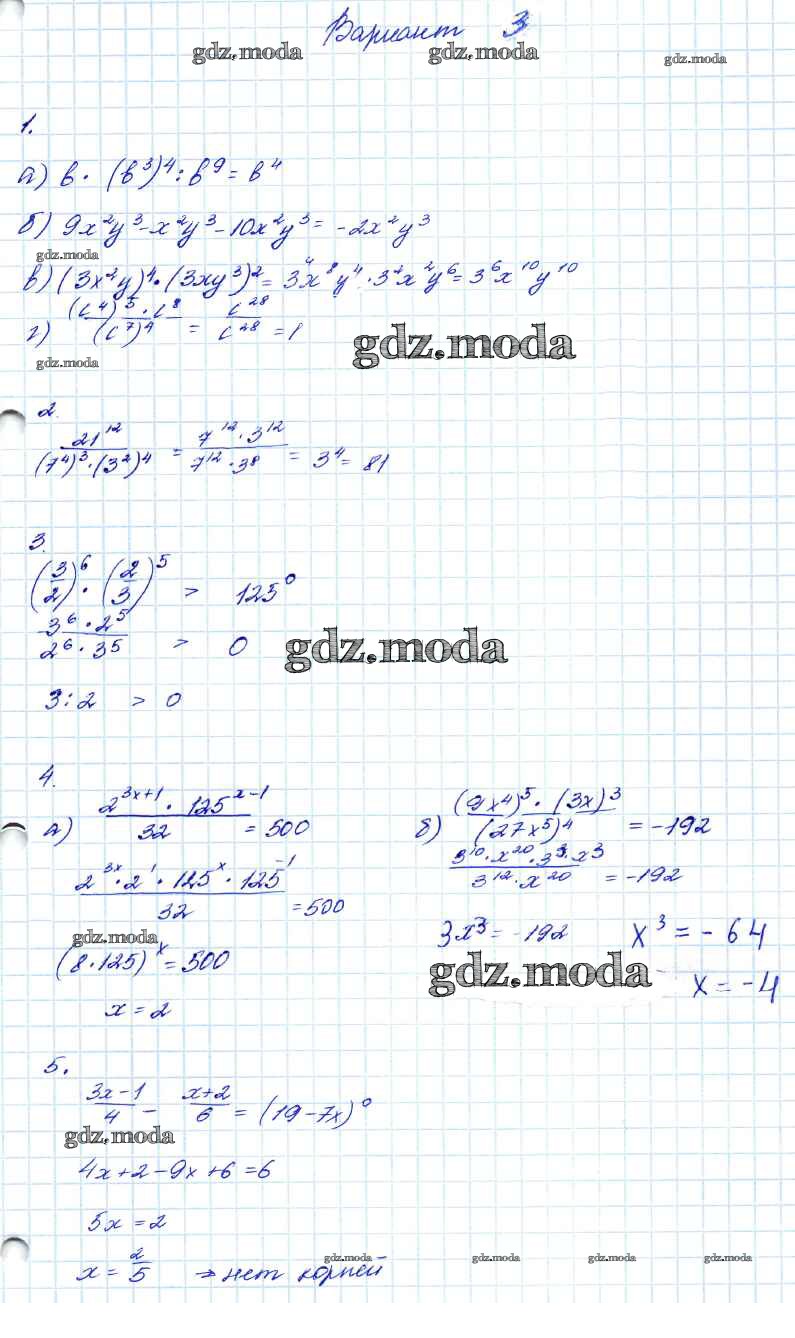 Вариант 3
gdz.moda gdz.moda gdz.moda
1.
а) b · (b³)⁴ : b⁹ = b⁴
б) 9x²y³ - x²y³ - 10x²y³ = -2x²y³
gdz.moda
в) (3x²y)⁴ · (3xy³)² = 3⁴x⁸y⁴ · 3²x²y⁶ = 3⁶x¹⁰y¹⁰
г) (c⁴)⁵ · c⁸ / (c⁷)⁴ = c²⁸ / c²⁸ = 1
gdz.moda
gdz.moda
2.
21¹² / (7⁴)³ · (3²)⁴ = 7¹² · 3¹² / 7¹² · 3⁸ = 3⁴ = 81
3.
(3/2)⁶ · (2/3)⁵ > 125⁰
3⁶ · 2⁵ / 2⁶ · 3⁵ > 0
gdz.moda
3 : 2 > 0
4.
а) 2³ˣ⁺¹ · 125ˣ⁻¹ / 32 = 500
2³ˣ · 2¹ · 125ˣ · 125⁻¹ / 32 = 500
gdz.moda
(8 · 125)ˣ = 500
x = 2
б) (9x⁴)⁵ · (3x)³ / (27x⁵)⁴ = -192
3¹⁰ · x²⁰ · 3³ · x³ / 3¹² · x²⁰ = -192
3x³ = -192 x³ = -64
gdz.moda
x = -4
5.
3x-1 / 4 - x+2 / 6 = (19-7x)⁰
gdz.moda
4x+2-9x+6=6
5x = 2
gdz.moda gdz.moda gdz.moda gdz.moda
x = 2/5 → нет корней